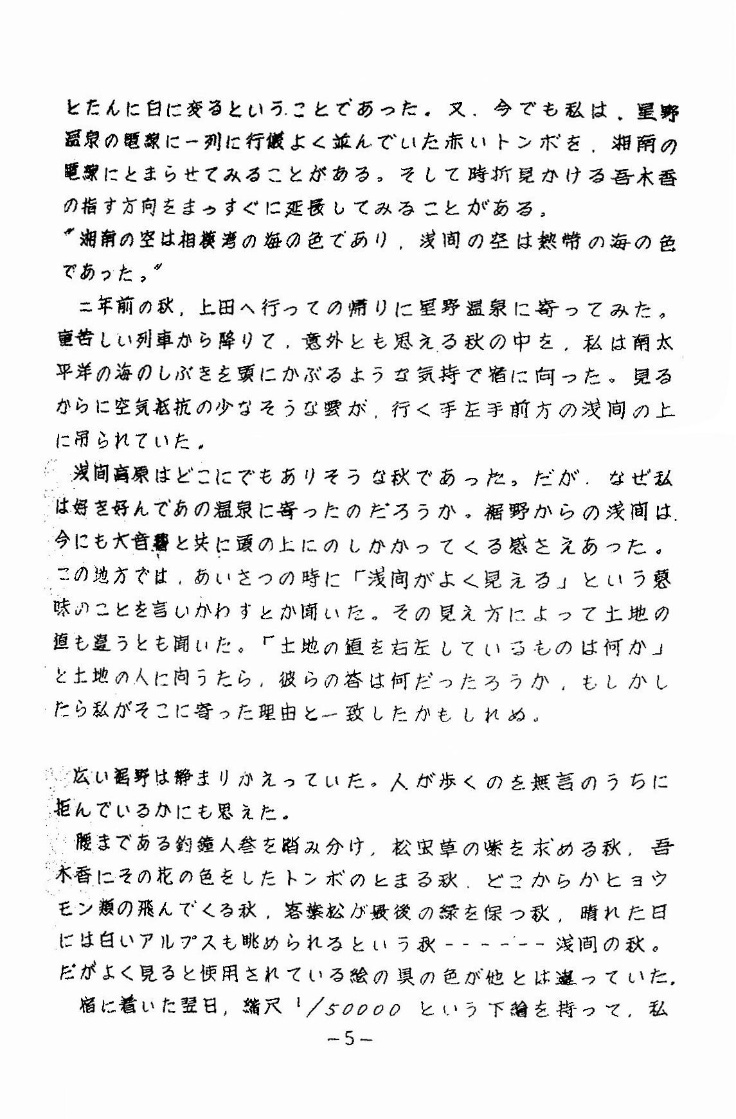 とたんに白に変るということであった。又、今でも私は、星野
温泉の電線に一列に行儀よく並んでいた赤いトンボを、湘南の
電線にとまらせてみることがある。そして時折見かける吾木香
の指す方向をまっすぐに延長してみることがある。
“湘南の空は相模湾の海の色であり、浅間の空は熱帯の海の色
であった。”
二年前の秋、上田へ行っての帰りに星野温泉に寄ってみた。
重苦しい列車から降りて、意外とも思える秋の中を、私は南太
平洋の海のしぶきを頭にかぶるような気持で宿に向った。見る
からに空気抵抗の少なそうな雲が、行く手左手前方の浅間の上
に吊られていた。
浅間高原はどこにでもありそうな秋であった。だが、なぜ私
は好き好んであの温泉に寄ったのだろうか。裾野からの浅間は、
今にも大音響と共に頭の上にのしかかってくる感さえあった。
この地方では、あいさつの時に「浅間がよく見える」という意
味のことを言いかわすとか聞いた。その見え方によって土地の
値も違うとも聞いた。「土地の値を右左しているものは何か」
と土地の人に向うたら、彼らの答は何だったろうか、もしかし
たら私がそこに寄った理由と一致したかもしれぬ。
広い裾野は静まりかえっていた。人が歩くのを無言のうちに
拒んでいるかにも思えた。
腰まである釣鐘人参を踏み分け、松虫草の紫を求める秋、吾
木香にその花の色をしたトンボのとまる秋、どこからかヒョウ
モン類の飛んでくる秋、落葉松が最後の緑を保つ秋、晴れた日
には白いアルプスも眺められるという秋------浅間の秋。
だがよく見ると使用されている絵の具の色が他とは違っていた。
宿に着いた翌日、縮尺 1/50000 という下絵を持って、私
-5-